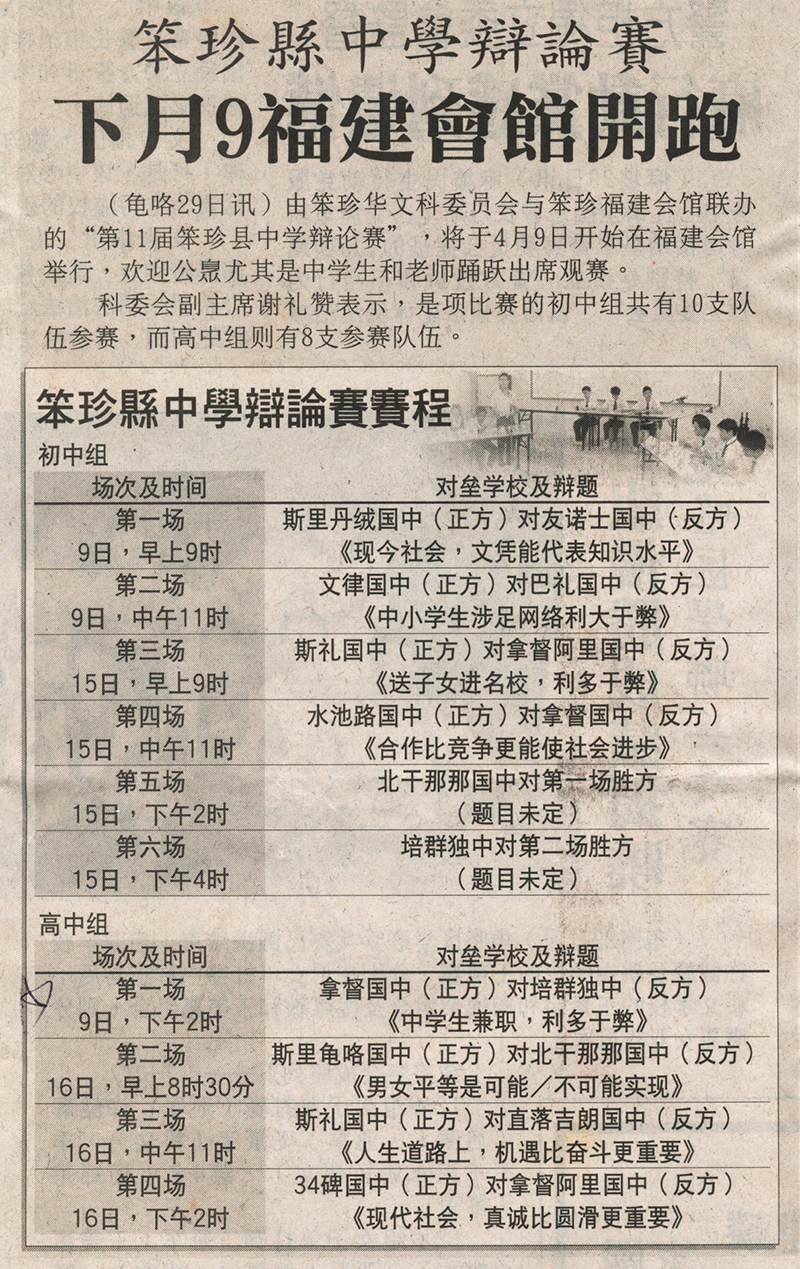 笨珍縣中學辯論賽
下月9福建會館開跑
（龟咯29日讯）由笨珍华文科委员会与笨珍福建会馆联办
的“第11届笨珍县中学辩论赛”，将于4月9日开始在福建会馆
举行，欢迎公意尤其是中学生和老师踊跃出席观赛。
科委会副主席谢礼赞表示，是项比赛的初中组共有10支队
伍参赛，而高中组则有8支参赛队伍。
笨珍縣中學辯論賽賽程
初中组
场次及时间 对垒学校及辩题
第一场 斯里丹绒国中（正方）对友诺士国中（反方）
9日，早上9时 《现今社会，文凭能代表知识水平》
第二场 文律国中（正方）对巴礼国中（反方）
9日，中午11时 《中小学生涉足网络利大于弊》
第三场 斯礼国中（正方）对拿督阿里国中（反方）
15日，早上9时 《送子女进名校，利多于弊》
第四场 水池路国中（正方）对拿督国中（反方）
15日，中午11时 《合作比竞争更能使社会进步》
第五场 北干那那国中对第一场胜方
15日，下午2时 （题目未定）
第六场 培群独中对第二场胜方
15日，下午4时 （题目未定）
高中组
场次及时间 对垒学校及辩题
第一场 拿督国中（正方）对培群独中（反方）
9日，下午2时 《中学生兼职，利多于弊》
第二场 斯里龟咯国中（正方）对北干那那国中（反方）
16日，早上8时30分 《男女平等是可能／不可能实现》
第三场 斯礼国中（正方）对直落吉朗国中（反方）
16日，中午11时 《人生道路上，机遇比奋斗更重要》
第四场 34碑国中（正方）对拿督阿里国中（反方）
16日，下午2时 《现代社会，真诚比圆滑更重要》